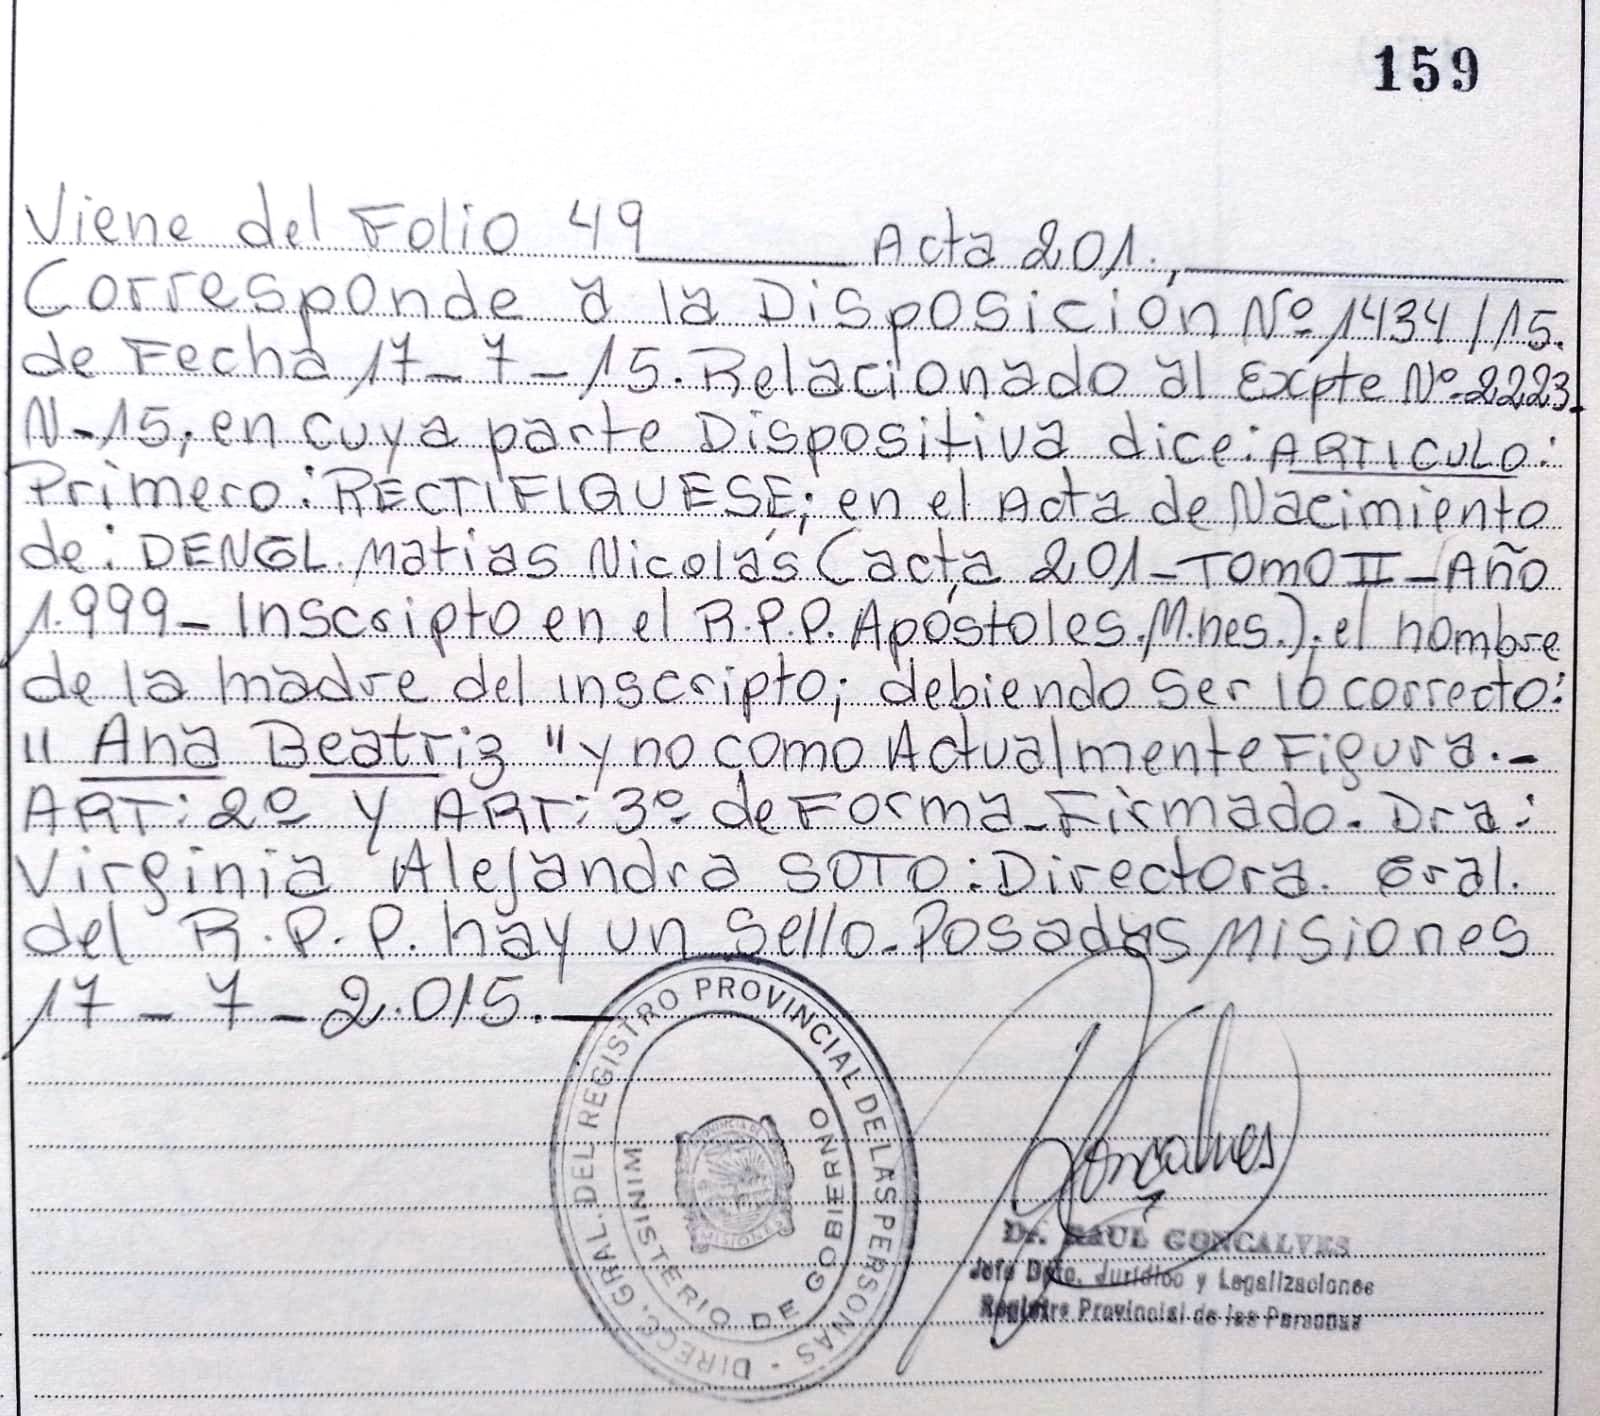 159
Viene del Folio 49 Acta 201.,
Corresponde a la Disposición Nº 1434/15.
de Fecha 17-7-15. Relacionado al Expte Nº 2223-
N-15, en cuya parte Dispositiva dice: ARTICULO:
Primero: RECTIFIQUESE; en el Acta de Nacimiento
de: DENGL Matias Nicolás (acta 201-TOMO II-Año
1.999- Inscripto en el R.P.P. Apóstoles.M.nes.). el nombre
de la madre del inscripto; debiendo ser lo correcto:
"Ana Beatriz" y no como Actualmente Figura.-
ART: 2º y ART: 3º de Forma-Firmado. Dra:
Virginia Alejandra SOTO: Directora. Gral.
del R.P.P. hay un Sello-Posadas Misiones
17-7-2.015.-
DIRECC. GRAL. DEL REGISTRO PROVINCIAL DE LAS PERSONAS -
MINISTERIO DE GOBIERNO
PROVINCIA DE
MISIONES
Goncalves
Dr. RAUL GONCALVES
Jefe Dpto. Jurídico y Legalizaciones
Registro Provincial de las Personas